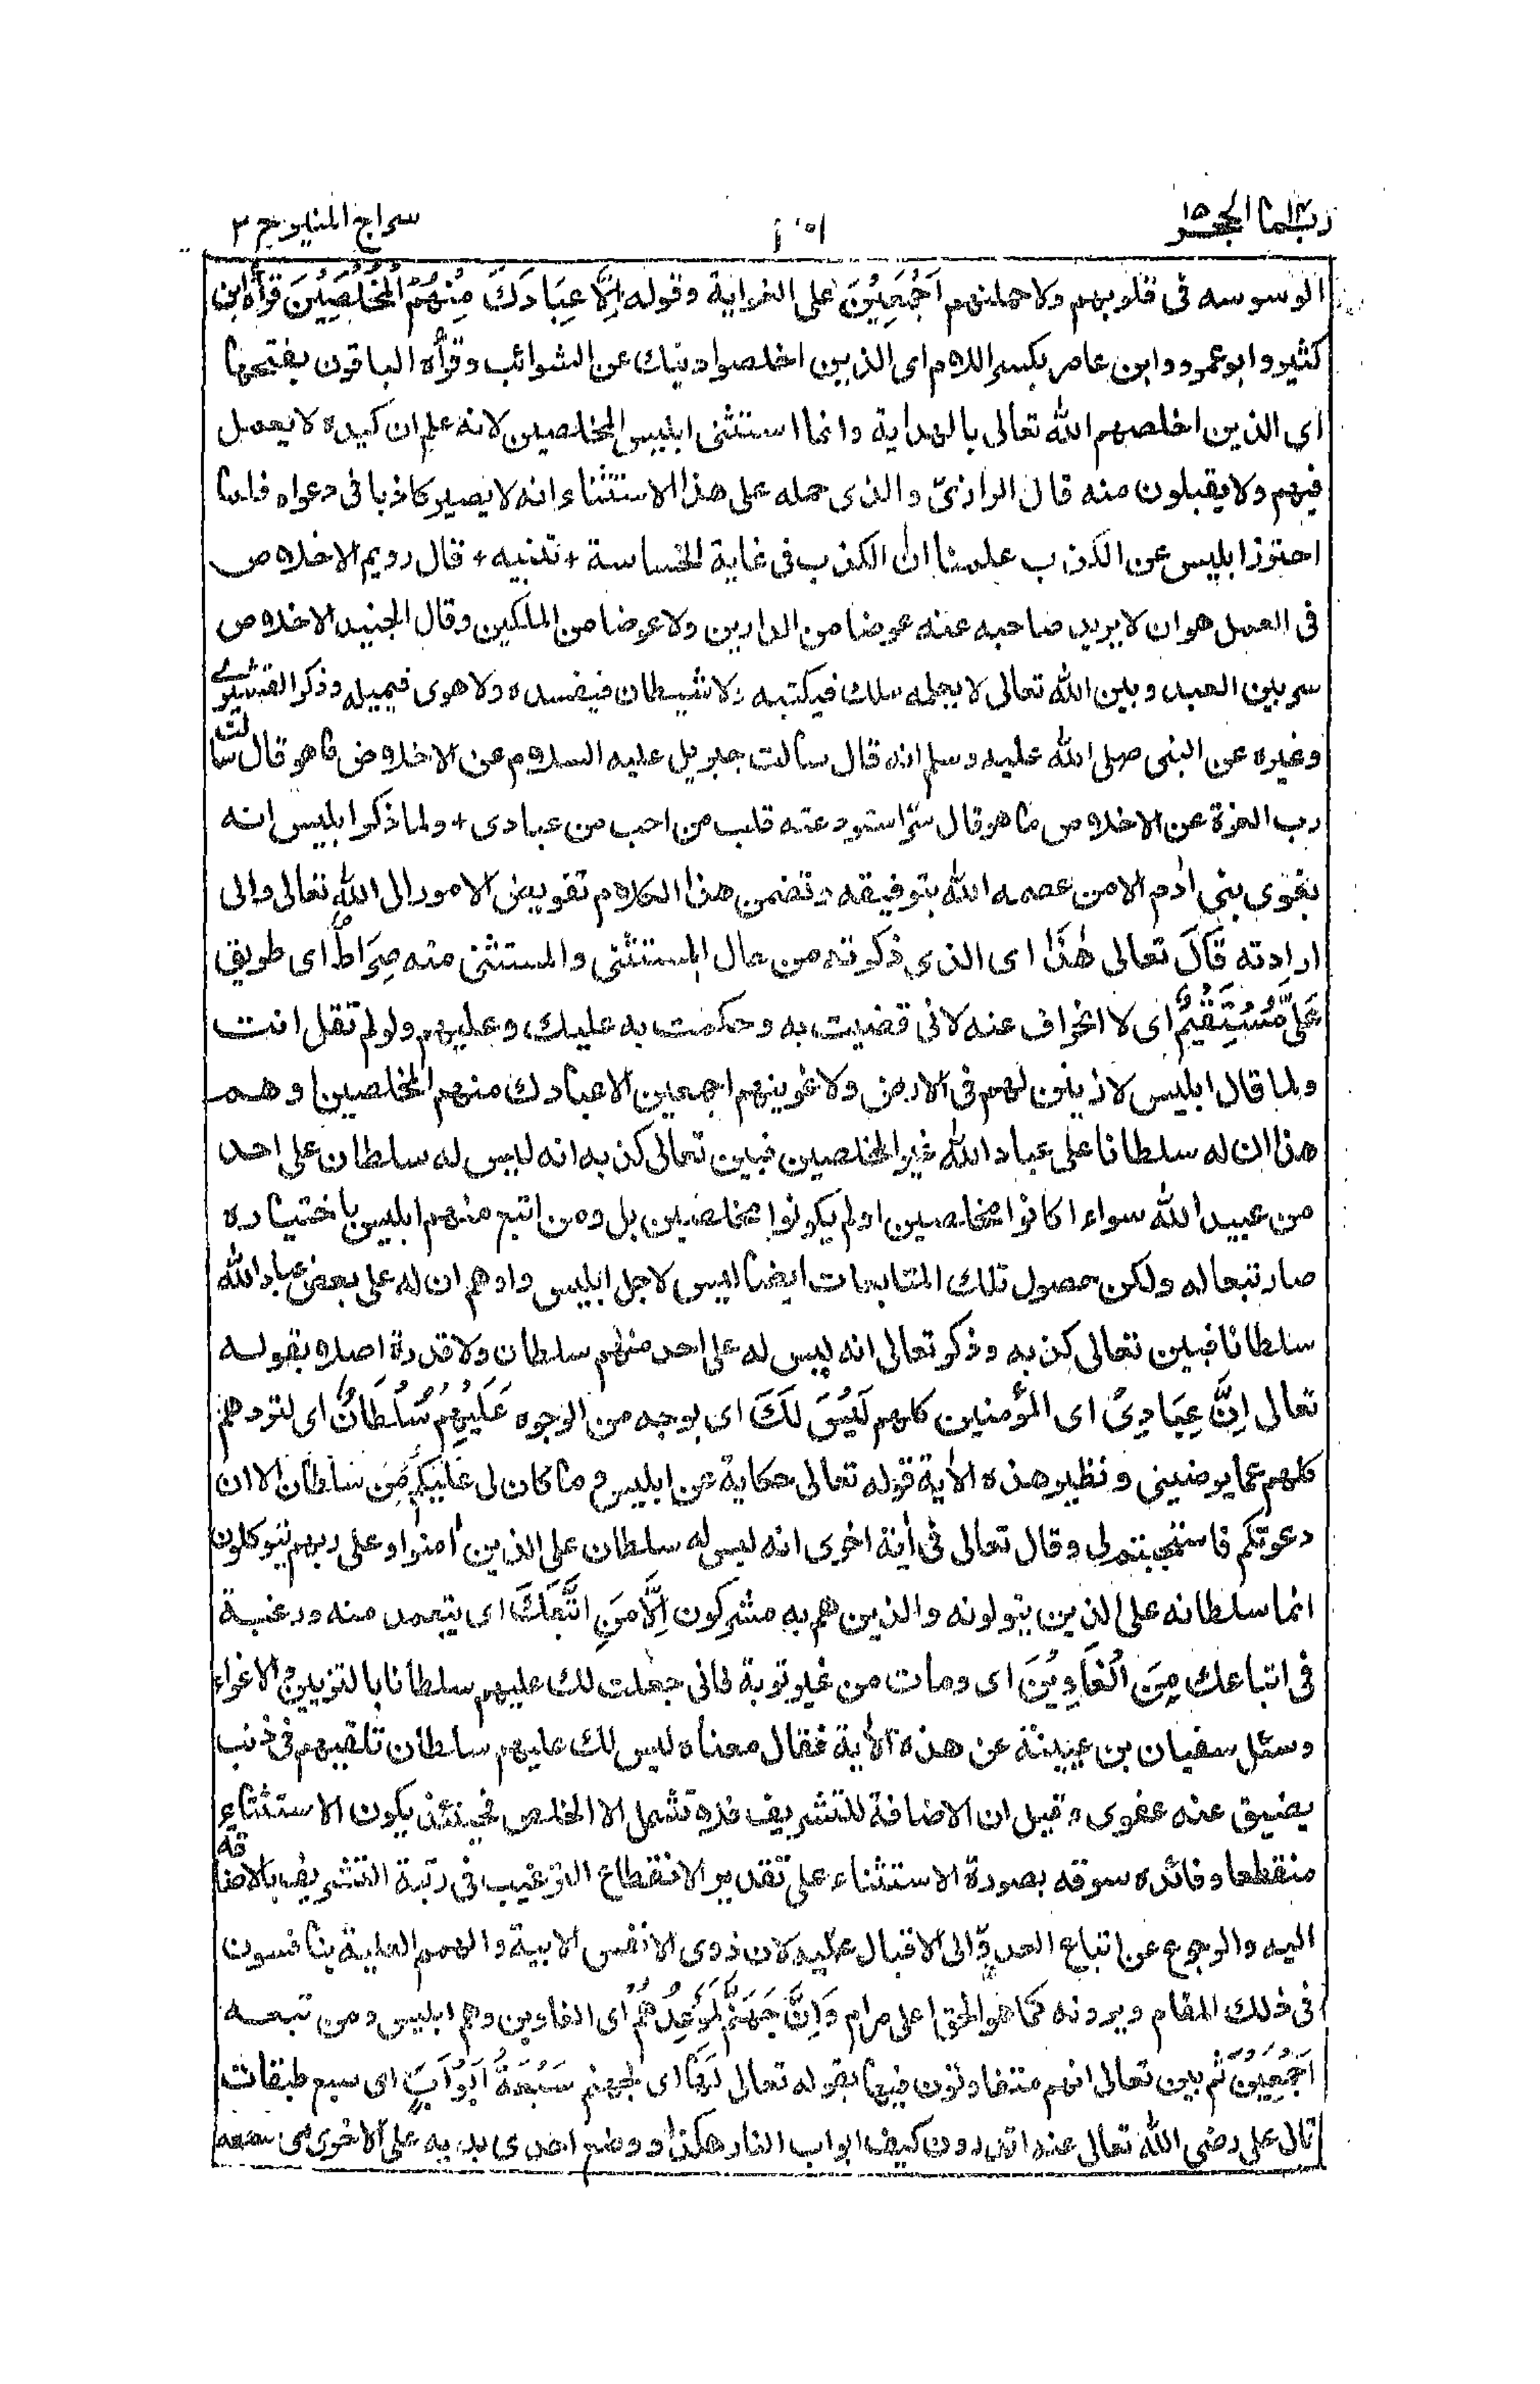 ربما الحجر ١٥
١٠٥١
سراج المنير ج ٢
الوسوسه فى قلوبهم ولاحملنهم اَجْمَعِيْنَ على الغواية وقوله اِلَّا عِبَادَكَ مِنْهُمُ الْمُخْلَصِيْنَ قرأه ابن
كثير وابوعمرو وابن عامر بكسر اللام اى الذين اخلصوا دينك عن الشوائب وقرأه الباقون بفتحها
اى الذين اخلصهم الله تعالى بالهداية وانما استثنى ابليس المخلصين لانه علم ان كيده لا يعمل
فيهم ولا يقبلون منه قال الرازىّ والذى حمله على هذا الاستثناء انه لا يصير كاذبا فى دعواه فلما
احترز ابليس عن الكذب علمنا ان الكذب فى غاية الخساسة + تنبيه + قال رويم الاخلاص
فى العمل هوان لا يريد صاحبه عنه عوضا من الدارين ولا عوضا من الملكين وقال الجنيد الاخلاص
سر بين العبد وبين الله تعالى لا يعلمه ملك فيكتبه ولا شيطان فيفسده ولا هوى فيميله وذكر القشيرى
وغيره عن النبى صلى الله عليه وسلم انه قال سألت جبريل عليه السلام عن الاخلاص ما هو قال سألت
رب العزة عن الاخلاص ما هو قال سرّ استودعته قلب من احب من عبادى + ولما ذكر ابليس انه
يغوى بنى اٰدم الا من عصمه الله بتوفيقه وتضمن هذا الكلام تفويض الامور الى الله تعالى والى
ارادته قَالَ تعالى هٰذَا اى الذى ذكرته من حال المستثنى والمستثنى منه صِرَاطٌ اى طريق
عَلَيَّ مُسْتَقِيْمٌ اى لا انحراف عنه لانى قضيت به وحكمت به عليك وعليهم ولو لم تقل انت
ولما قال ابليس لازينن لهم فى الارض ولاغوينهم اجمعين الا عبادك منهم المخلصين اوهم
هذا ان له سلطانا على عباد الله غير المخلصين فبين تعالى كذبه انه ليس له سلطان على احد
من عبيد الله سواء اكانوا مخلصين اولم يكونوا مخلصين بل ومن اتبع منهم ابليس باختياره
صار تبعا له ولكن حصول تلك المتابعات ايضا ليس لاجل ابليس واوهم ان له على بعض عباد الله
سلطانا فبين تعالى كذبه وذكر تعالى انه ليس له على احد منهم سلطان ولا قدرة اصلا بقوله
تعالى اِنَّ عِبَادِىْ اى المؤمنين كلهم لَيْسَ لَكَ اى بوجه من الوجوه عَلَيْهِمْ سُلْطَانٌ اى لتردهم
كلهم عما يرضينى ونظير هذه الاٰية قوله تعالى حكاية عن ابليس وما كان لى عليكم من سلطان الا ان
دعوتكم فاستجبتم لى وقال تعالى فى اٰية اخرى انه ليس له سلطان على الذين اٰمنوا وعلى ربهم يتوكلون
انما سلطانه على الذين يتولونه والذين هم به مشركون اِلَّا مَنِ اتَّبَعَكَ اى بتعمد منه ورغبة
فى اتباعك مِنَ الْغَاوِيْنَ اى ومات من غير توبة فانى جعلت لك عليهم سلطانا بالتزيين والاغواء
وسئل سفيان بن عيينة عن هذه الاٰية فقال معناه ليس لك عليهم سلطان تلقيهم فى ذنب
يضيق عنه عفوى وقيل ان الاضافة للتشريف فلا تشمل الا الخلص فحينئذ يكون الاستثناء
منقطعا وفائده سوقه بصورة الاستثناء على تقدير الانقطاع الترغيب فى رتبة التشريف بالاضافة
اليه والرجوع عن اتباع العدو الى الاقبال عليه لان ذوى الانفس الابية والهمم العلية ينافسون
فى ذلك المقام ويرونه كما هو الحق اعلى مرام وَاِنَّ جَهَنَّمَ لَمَوْعِدُهُمْ اى الغاوين وهم ابليس ومن تبعه
اَجْمَعِيْنَ ثم بين تعالى انهم متفاوتون فيها بقوله تعالى لَهَا اى لجهنم سَبْعَةُ اَبْوَابٍ اى سبع طبقات
قال على رضى الله تعالى عنه اتدرون كيف ابواب النار هكذا ووضع احدى يديه على الاخرى اى سبعة